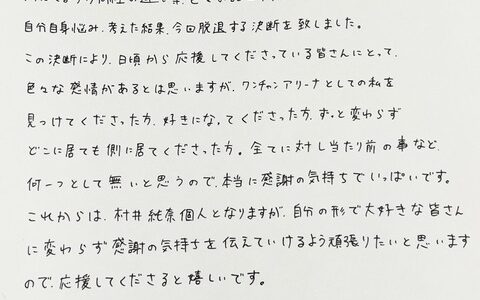 自分自身悩み、考えた結果、今回脱退する決断を致しました。
この決断により、日頃から応援してくださっている皆さんにとって、
色々な感情があるとは思いますが、ワンチャンアリーナとしての私を
見つけてくださった方、好きになってくださった方、ずっと変わらず
どこに居ても側に居てくださった方。全てに対し当たり前の事など、
何一つとして無いと思うので、本当に感謝の気持ちでいっぱいです。
これからは、村井純奈個人となりますが、自分の形で大好きな皆さん
に変わらず感謝の気持ちを伝えていけるよう頑張りたいと思います
ので、応援してくださると嬉しいです。